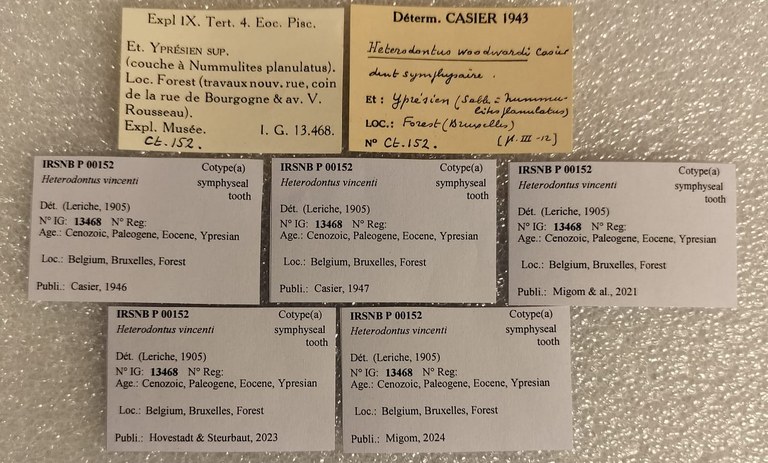 Expl IX. Tert. 4. Eoc. Pisc.
Et. YPRÉSIEN SUP.
(couche à Nummulites planulatus).
Loc. Forest (travaux nouv. rue, coin
de la rue de Bourgogne & av. V.
Rousseau).
Expl. Musée. I. G. 13.468.
Ct. 152.
Déterm. CASIER 1943
Heterodontus woodwardi Casier
dent symphysaire.
Et : Yprésien (Sabl. à Nummu-
lites planulatus)
LOC.: Forest (Bruxelles)
N° Ct. 152. [pl. III - 12]
IRSNB P 00152 Cotype(a)
Heterodontus vincenti symphyseal
tooth
Dét. (Leriche, 1905)
N° IG: 13468 N° Reg:
Age.: Cenozoic, Paleogene, Eocene, Ypresian
Loc.: Belgium, Bruxelles, Forest
Publi.: Casier, 1946
IRSNB P 00152 Cotype(a)
Heterodontus vincenti symphyseal
tooth
Dét. (Leriche, 1905)
N° IG: 13468 N° Reg:
Age.: Cenozoic, Paleogene, Eocene, Ypresian
Loc.: Belgium, Bruxelles, Forest
Publi.: Casier, 1947
IRSNB P 00152 Cotype(a)
Heterodontus vincenti symphyseal
tooth
Dét. (Leriche, 1905)
N° IG: 13468 N° Reg:
Age.: Cenozoic, Paleogene, Eocene, Ypresian
Loc.: Belgium, Bruxelles, Forest
Publi.: Migom & al., 2021
IRSNB P 00152 Cotype(a)
Heterodontus vincenti symphyseal
tooth
Dét. (Leriche, 1905)
N° IG: 13468 N° Reg:
Age.: Cenozoic, Paleogene, Eocene, Ypresian
Loc.: Belgium, Bruxelles, Forest
Publi.: Hovestadt & Steurbaut, 2023
IRSNB P 00152 Cotype(a)
Heterodontus vincenti symphyseal
tooth
Dét. (Leriche, 1905)
N° IG: 13468 N° Reg:
Age.: Cenozoic, Paleogene, Eocene, Ypresian
Loc.: Belgium, Bruxelles, Forest
Publi.: Migom, 2024